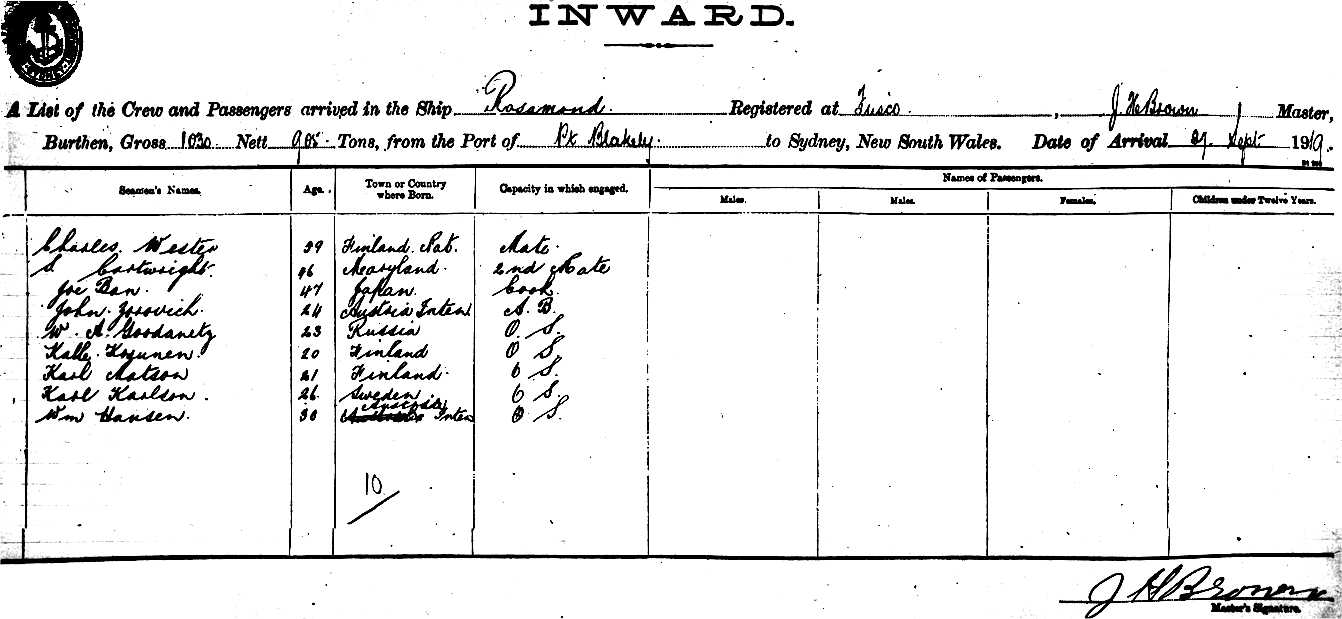 INWARD.
A List of the Crew and Passengers arrived in the Ship Rosamond. Registered at Frisco. , J H Brown Master,
Burthen, Gross 1030 Nett Tons, from the Port of Pt Blakely. to Sydney, New South Wales. Date of Arrival 27 Sept 1919.
Seamen's Names. Age. Town or Country where Born. Capacity in which engaged. Names of Passengers.
Males. Males. Females. Children under Twelve Years.
Charles Wester 39 Finland. Nat. Mate.
S Cartwright. 46 Maryland. 2nd Mate
Joe Ban. 47 Japan. Cook.
John 24 Austria Inten A. B.
W. A. Goodanetz 23 Russia O S.
Kalle Kosunen. 20 Finland O S.
Karl Matson 21 Finland. O S.
Karl Karlson. 26 Sweden O S.
Wm Hansen. 30 Inten O S.
10
J H Brown
Master's Signature.